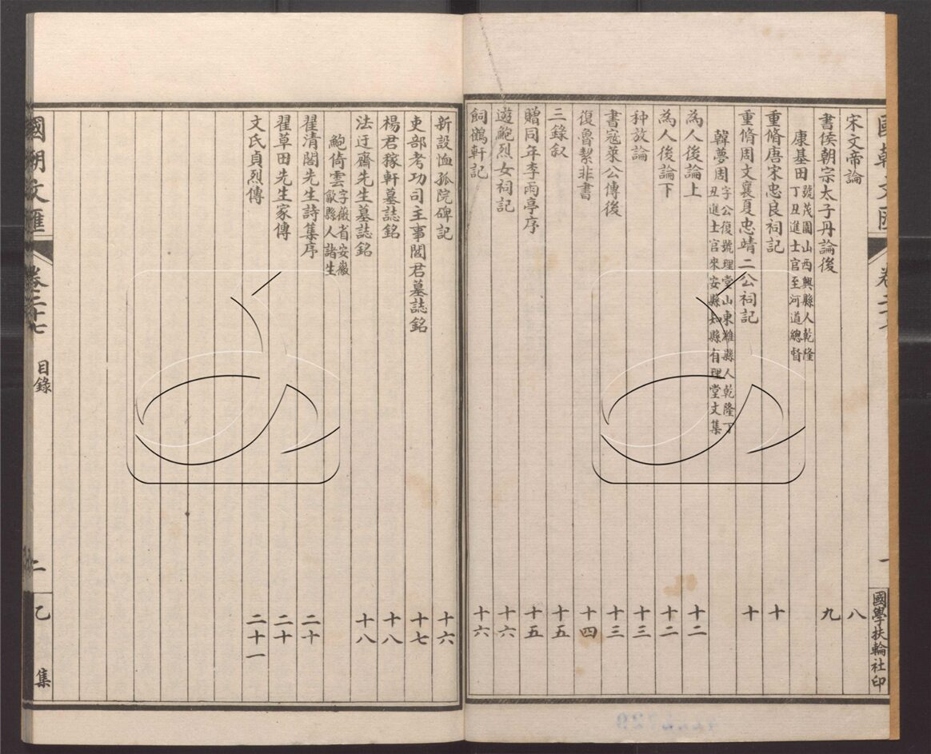 國學扶輪社印
宋文帝論 八
書侯朝宗太子丹論後 九
康基田 號茂園山西興縣人乾隆丁丑進士官至河道總督
重脩唐宋忠良祠記 十
重脩周文襄夏忠靖二公祠記 十
韓夢周 字公復號理堂山東濰縣人乾隆丁丑進士官來安縣知縣有理堂文集
為人後論上 十二
為人後論下 十二
种放論 十三
書寇萊公傳後 十三
復魯絜非書 十四
三錄敘 十五
贈同年李雨亭序 十五
遊鮑烈女祠記 十六
飼鶴軒記 十六
新設恤孤院碑記 十六
吏部考功司主事閻君墓誌銘 十七
楊君稼軒墓誌銘 十八
法迂齋先生墓誌銘 十八
鮑倚雲 字薇省安徽歙縣人諸生
翟清閣先生詩集序 二十
翟草田先生家傳 二十
文氏貞烈傳 二十一
國朝文匯 卷二十七 目錄 二 乙集